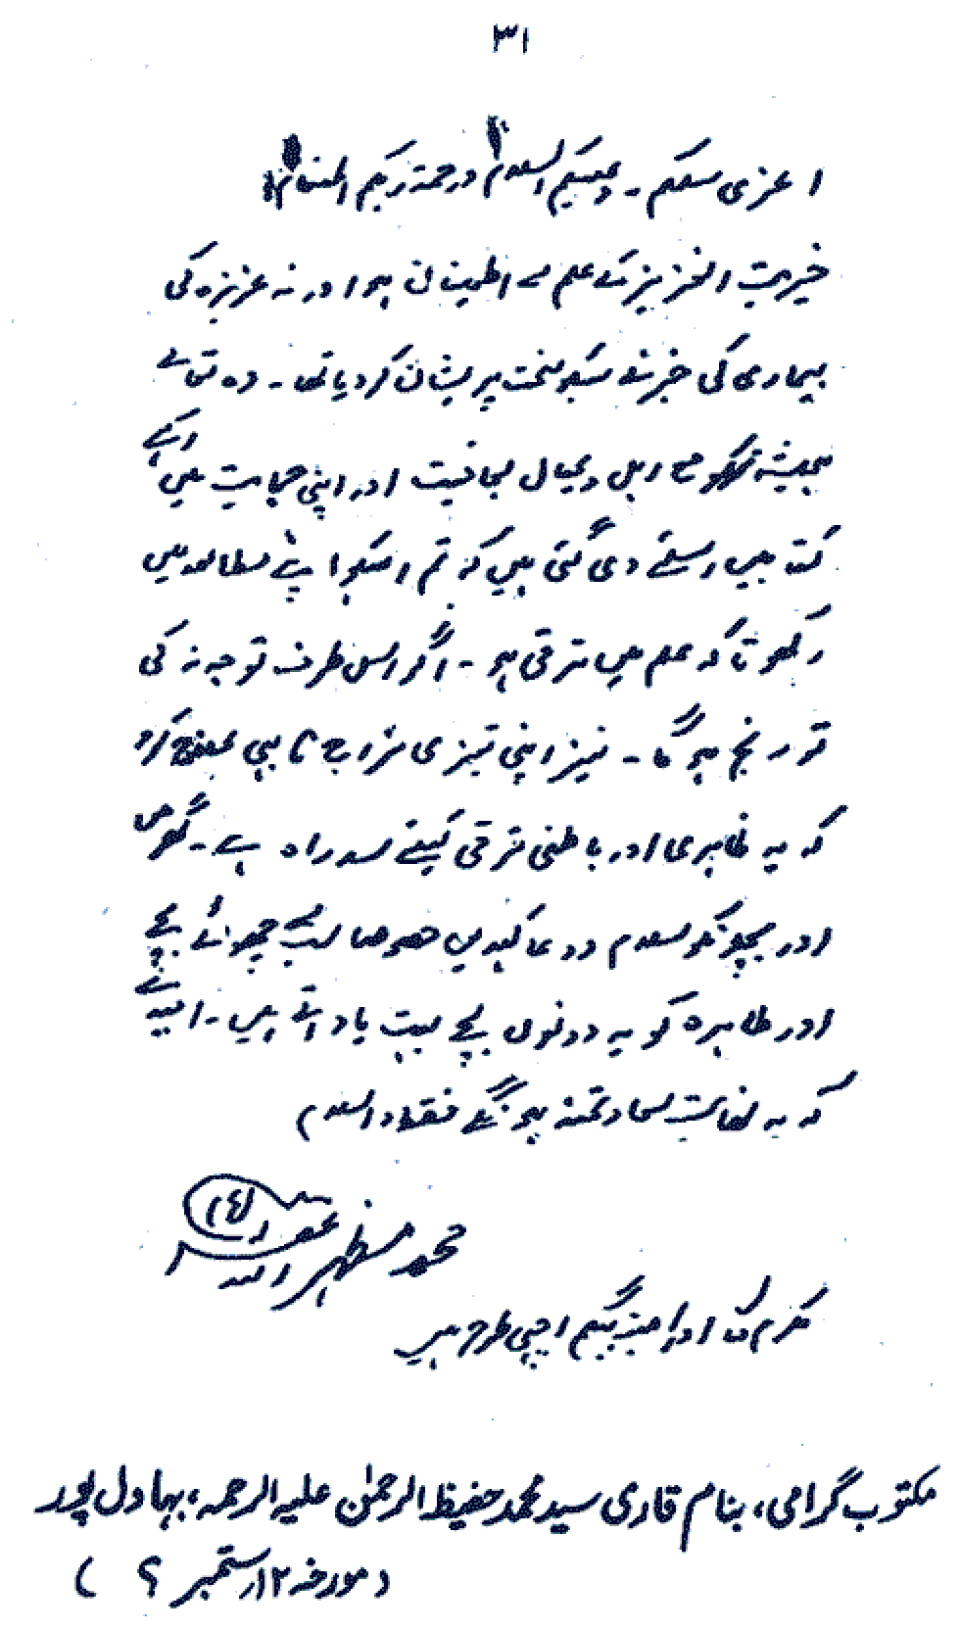 ۳۱
اعزی سلمکم ۔ وعلیکم السلام ورحمۃ ربکم المنعام
خیریت العزیز کے علم سے اطمینان ہوا ورنہ عزیزہ کی
بیماری کی خبر نے سخت پریشان کردیا تھا ۔ وہ تعالے
ہمیشہ تمکو مع اہل و عیال بعافیت اور اپنی حمایت میں رکھے
کتابیں اسلئے دی گئی ہیں کہ تم انکو اپنے مطالعہ میں
رکھو تاکہ علم میں ترقی ہو ۔ اگر اس طرف توجہ نہ کی
تو رنج ہوگا ۔ نیز اپنی تیزی مزاج کا بھی علاج کرو
کہ یہ ظاہری اور باطنی ترقی کیلئے سدراہ ہے ۔ گھر میں
اور بچونکو سلام و دعا کہدیں خصوصا چھوٹے بچے
اور طاہرہ کو یہ دونوں بچے بہت یاد آتے ہیں ۔ امید ہے
کہ یہ نہایت سعادتمند ہونگے فقط والسلام
محمد مظہر اللہ غفرلہ
مکرم اور بیگم اچھی طرح ہیں
مکتوب گرامی، بنام قاری سید محمد حفیظ الرحمٰن علیہ الرحمہ، بہاول پور
(مورخہ ۱۲ ستمبر ؟ )